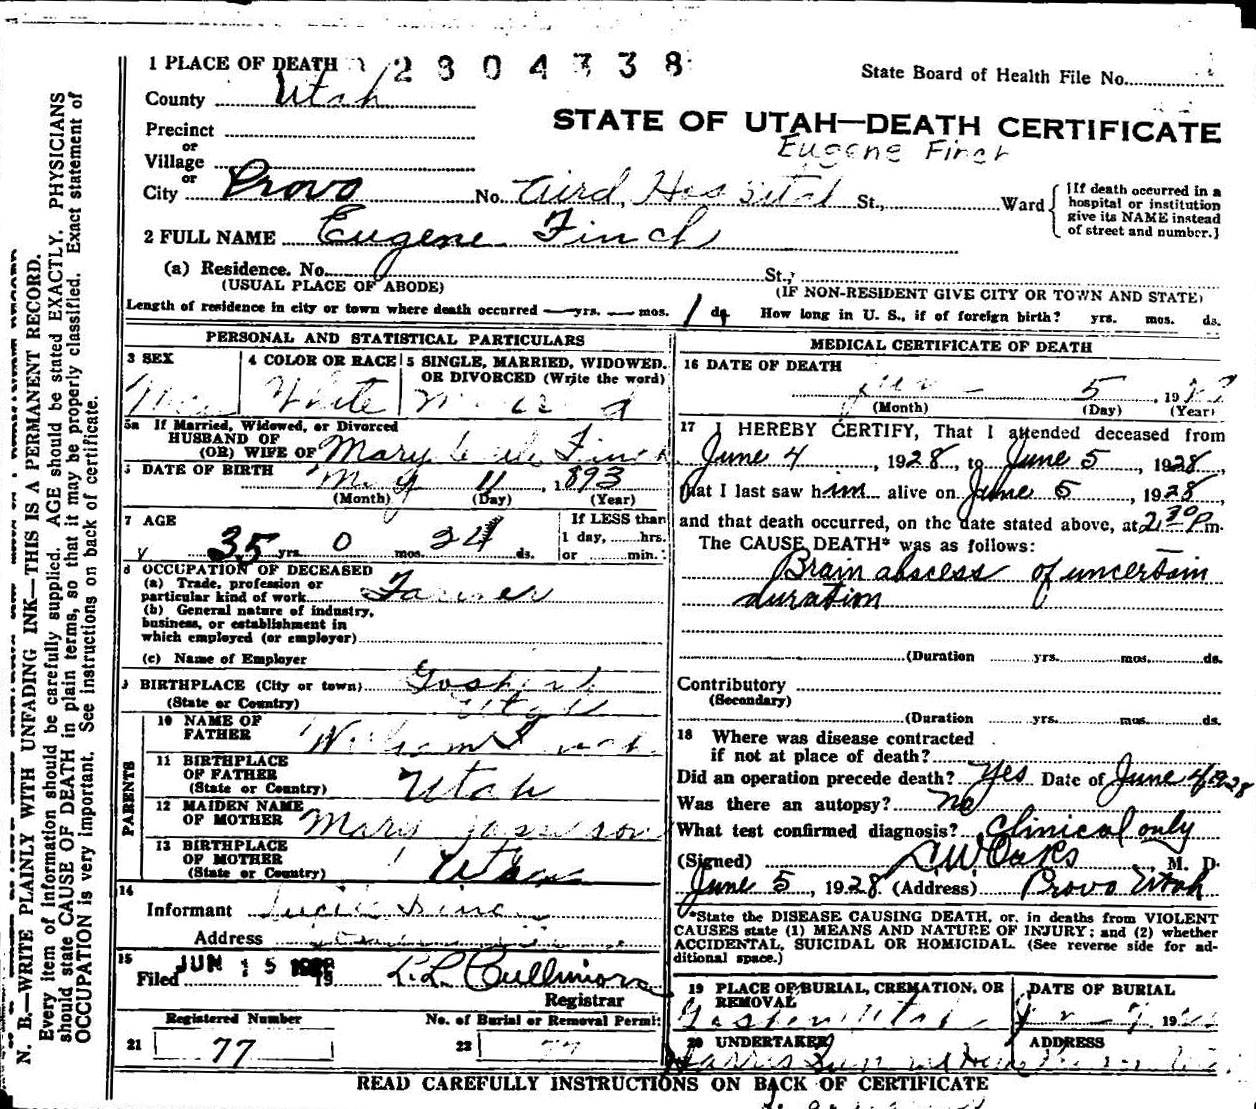 1 PLACE OF DEATH 2804338
State Board of Health File No.
County Utah
STATE OF UTAH—DEATH CERTIFICATE
Eugene Finch
Precinct
or
Village
or
City Provo No. Aird Hospital St., Ward
[If death occurred in a
hospital or institution
give its NAME instead
of street and number.]
2 FULL NAME Eugene Finch
(a) Residence. No. St.,
(USUAL PLACE OF ABODE) (IF NON-RESIDENT GIVE CITY OR TOWN AND STATE)
Length of residence in city or town where death occurred — yrs. — mos. 1 ds. How long in U. S., if of foreign birth? yrs. mos. ds.
PERSONAL AND STATISTICAL PARTICULARS
3 SEX
4 COLOR OR RACE
White
5 SINGLE, MARRIED, WIDOWED,
OR DIVORCED (Write the word)
5a If Married, Widowed, or Divorced
HUSBAND OF
(OR) WIFE OF Mary Finch
DATE OF BIRTH May 11, 1893
(Month) (Day) (Year)
7 AGE 35 yrs. 0 mos. 24 ds.
If LESS than
1 day, hrs.
or min.
8 OCCUPATION OF DECEASED
(a) Trade, profession or
particular kind of work Farmer
(b) General nature of industry,
business, or establishment in
which employed (or employer)
(c) Name of Employer
9 BIRTHPLACE (City or town) Goshen
(State or Country) Utah
PARENTS
10 NAME OF
FATHER William Finch
11 BIRTHPLACE
OF FATHER
(State or Country) Utah
12 MAIDEN NAME
OF MOTHER Mary
13 BIRTHPLACE
OF MOTHER
(State or Country) Utah
14
Informant
Address
15
Filed JUN 15 19 L. L. Cullimore
Registrar
Registered Number
21 77
No. of Burial or Removal Permit
22 77
MEDICAL CERTIFICATE OF DEATH
16 DATE OF DEATH
5, 19
(Month) (Day) (Year)
17 I HEREBY CERTIFY, That I attended deceased from
June 4, 1928, to June 5, 1928,
that I last saw him alive on June 5, 1928,
and that death occurred, on the date stated above, at 2:30 P.m.
The CAUSE DEATH* was as follows:
Brain abscess of uncertain
duration
(Duration yrs. mos. ds.
Contributory
(Secondary)
(Duration yrs. mos. ds.
18 Where was disease contracted
if not at place of death?
Did an operation precede death? Yes Date of June 4 1928
Was there an autopsy? no
What test confirmed diagnosis? clinical only
(Signed) L W Oaks M. D.
June 5, 1928 (Address) Provo Utah
*State the DISEASE CAUSING DEATH, or, in deaths from VIOLENT
CAUSES state (1) MEANS AND NATURE OF INJURY; and (2) whether
ACCIDENTAL, SUICIDAL OR HOMICIDAL. (See reverse side for ad-
ditional space.)
19 PLACE OF BURIAL, CREMATION, OR
REMOVAL
Goshen Utah
DATE OF BURIAL
19
20 UNDERTAKER
ADDRESS
READ CAREFULLY INSTRUCTIONS ON BACK OF CERTIFICATE
N. B.—WRITE PLAINLY WITH UNFADING INK—THIS IS A PERMANENT RECORD.
Every item of information should be carefully supplied. AGE should be stated EXACTLY. PHYSICIANS
should state CAUSE OF DEATH in plain terms, so that it may be properly classified. Exact statement of
OCCUPATION is very important. See instructions on back of certificate.